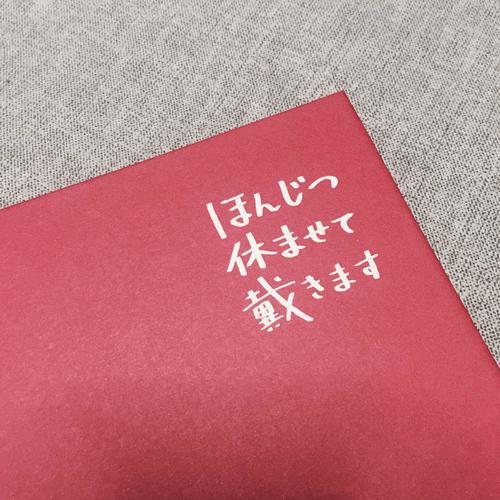 ほんじつ
休ませて
戴きます